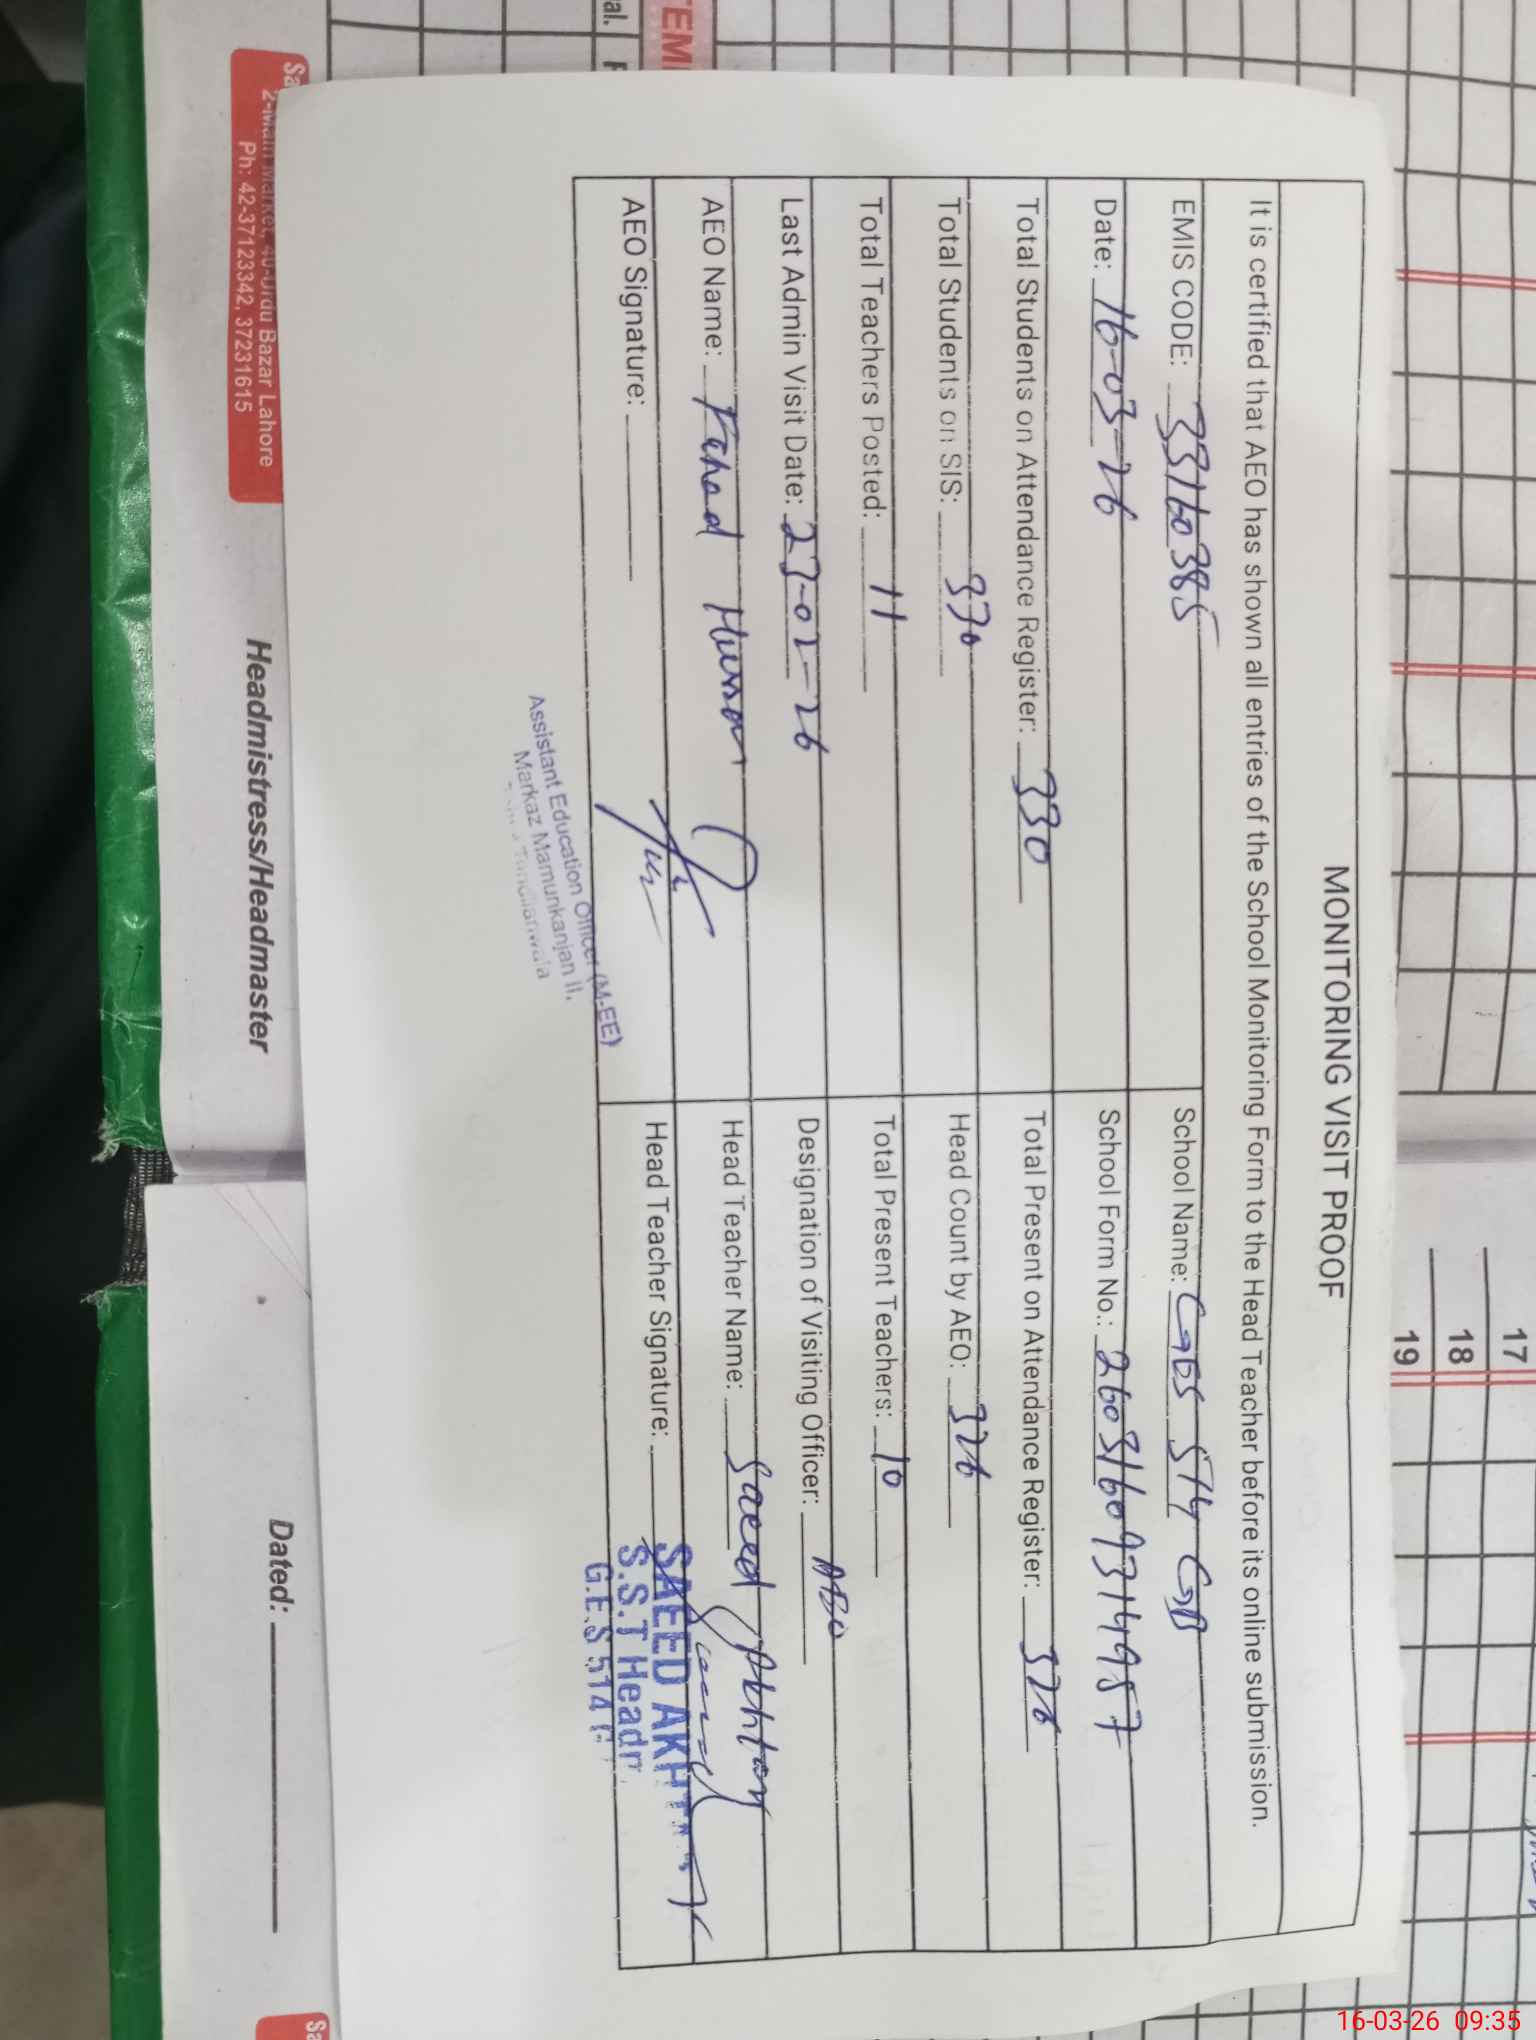 MONITORING VISIT PROOF
It is certified that AEO has shown all entries of the School Monitoring Form to the Head Teacher before its online submission.
EMIS CODE: 33160385
School Name: GES 514 GB
Date: 16-03-26
School Form No.: 26031609314957
Total Students on Attendance Register: 330
Total Present on Attendance Register: 326
Total Students on SIS: 330
Head Count by AEO: 326
Total Teachers Posted: 11
Total Present Teachers: 10
Last Admin Visit Date: 27-02-26
Designation of Visiting Officer: AEO
AEO Name: Fahad Hussan
Head Teacher Name: Saeed Akhtar
AEO Signature:
Head Teacher Signature:
SAEED AKHT
S.S.T Headm
G.E.S 514 G
Assistant Education Officer (M-EE)
Markaz Mamunkanjan II,
Tandlianwala
2-Main Market, 40-Urdu Bazar Lahore
Ph: 42-37123342, 37231615
Headmistress/Headmaster
Dated:
17
18
19
16-03-26 09:35